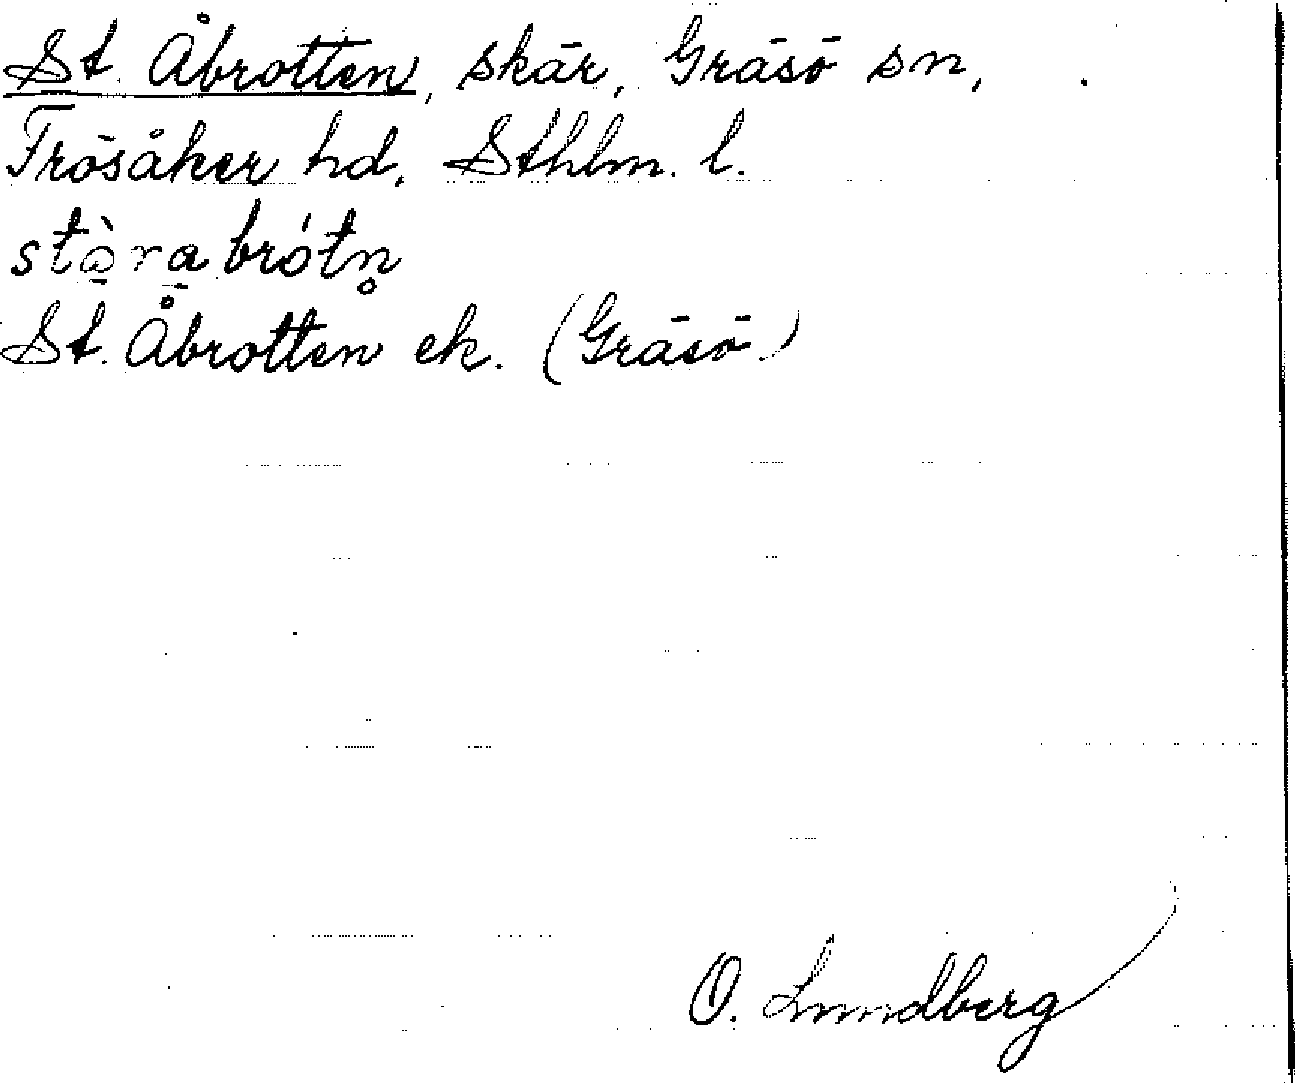 St. Åbrotten, skär, Gräsö sn,
Frösåker hd, Sthlm. l.
stò̱ra̱ brótn̥
St. Åbrotten ek. (Gräsö)
O. Lundberg